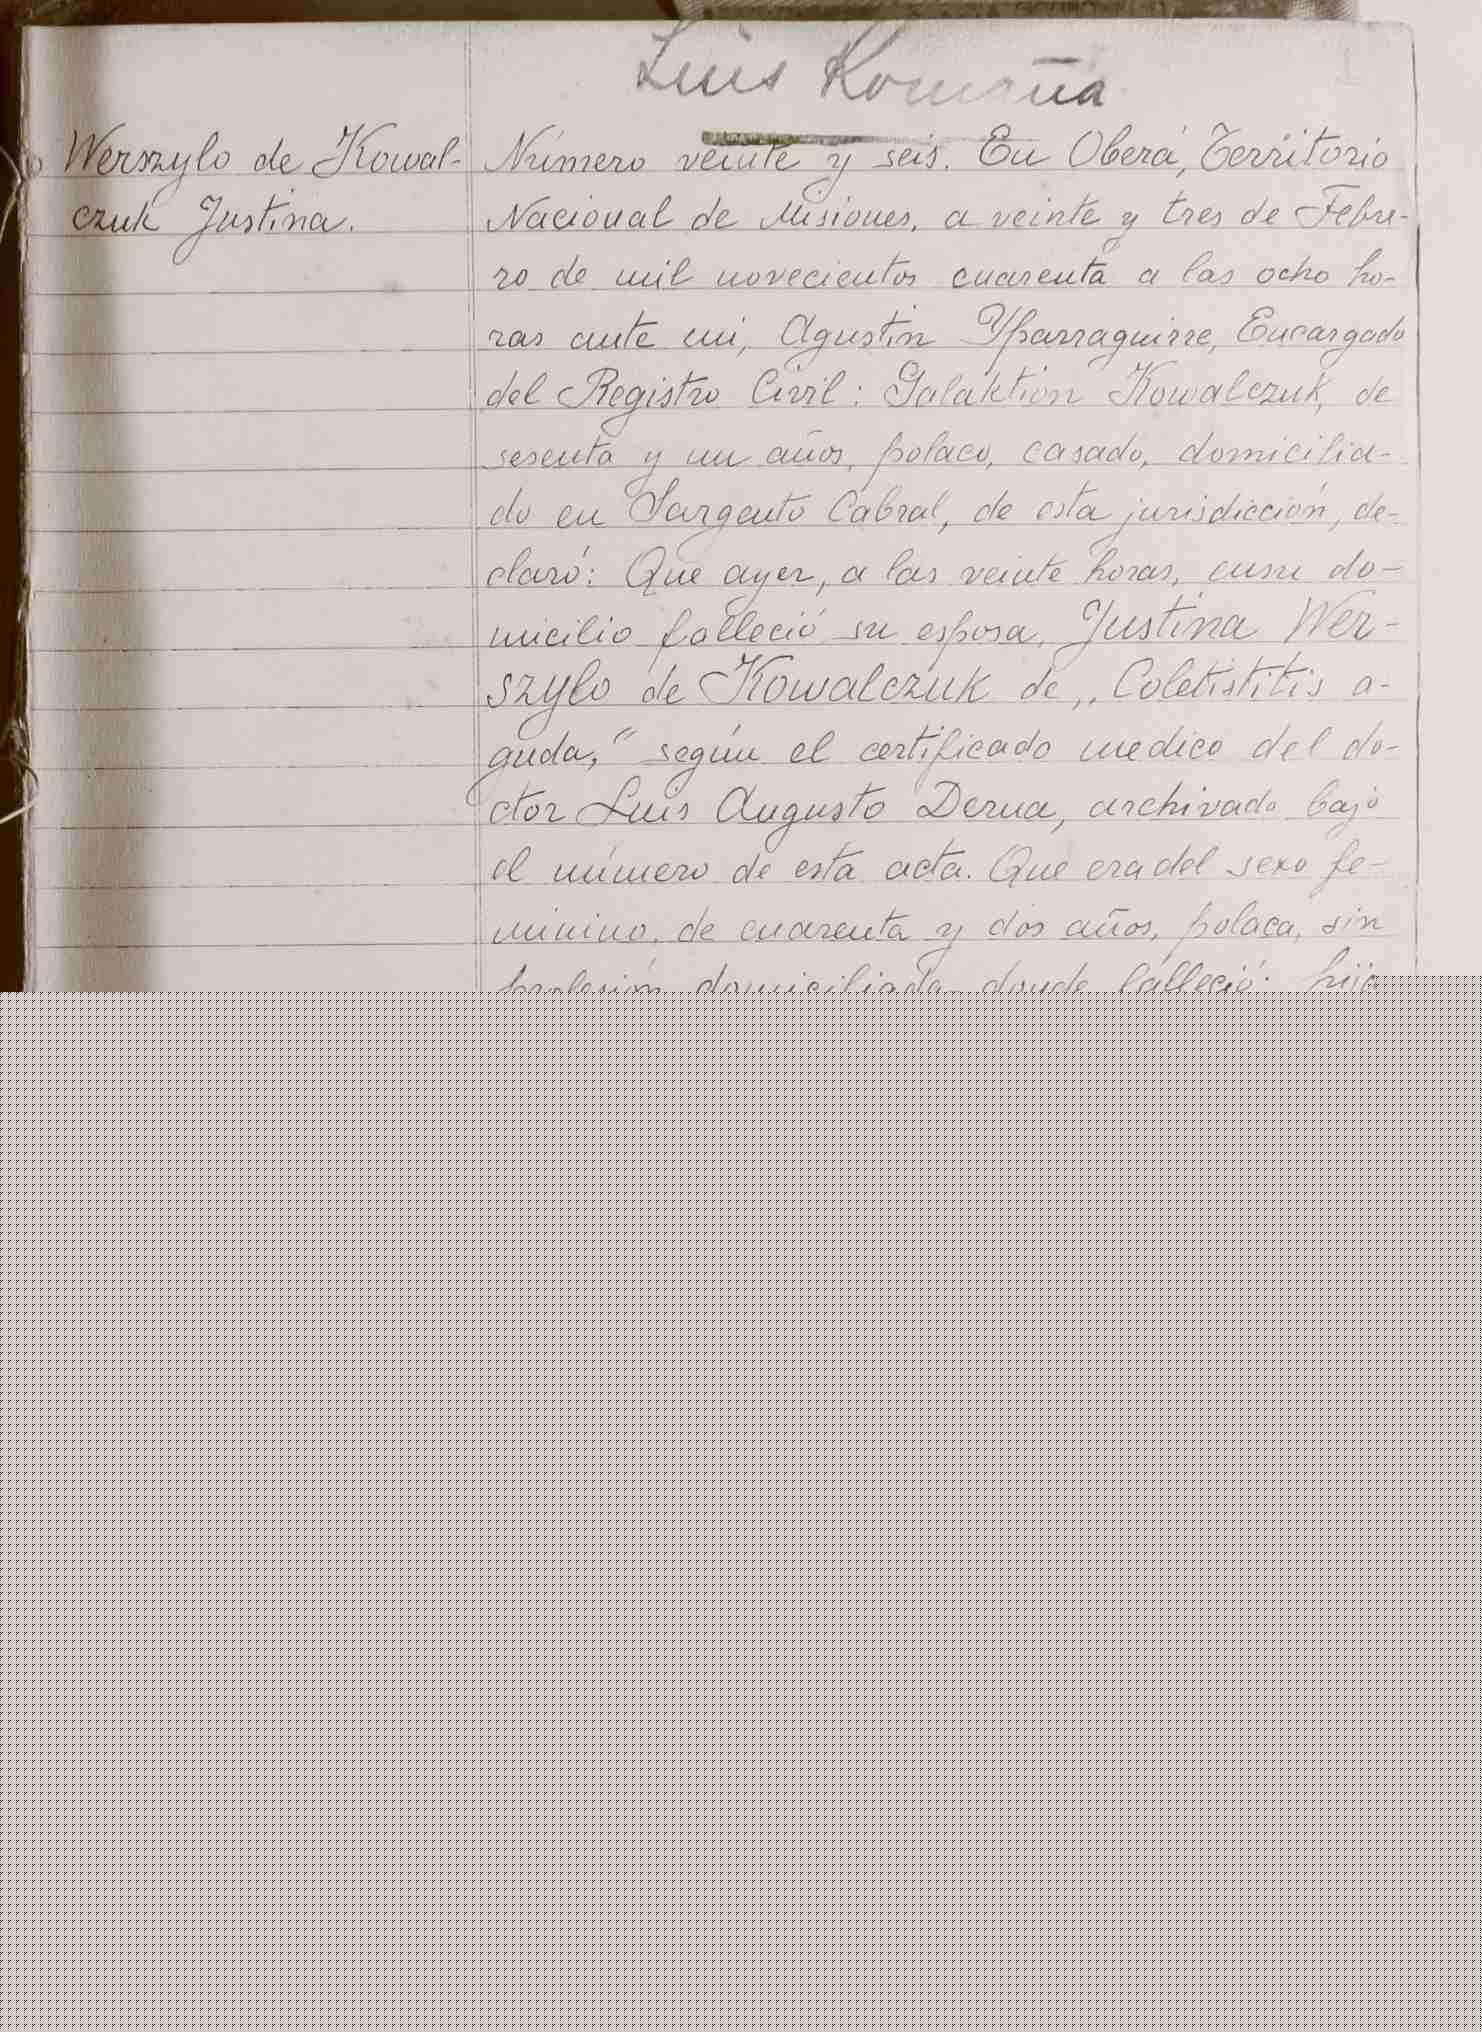 Luis Komaña
Werszylo de Kowal-
czuk Justina.
Número veinte y seis. En Oberá, Território
Nacional de Misiones, a veinte y tres de Febre-
ro de mil novecientos cuarenta a las ocho ho-
ras ante mi, Agustin Yparraguirre, Encargado
del Registro Civil: Galaktion Kowalczuk, de
sesenta y un años, polaco, casado, domicilia-
do en Sargento Cabral, de esta jurisdicción, de-
claró: Que ayer, a las veinte horas, en su do-
micilio falleció su esposa, Justina Wer-
szylo de Kowalczuk de „Coletistitis a-
guda,” según el certificado medico del do-
ctor Luis Augusto Derna, archivado bajo
el número de esta acta. Que era del sexo fe-
minino, de cuarenta y dos años, polaca, sin
profesión domiciliada donde falleció: hija